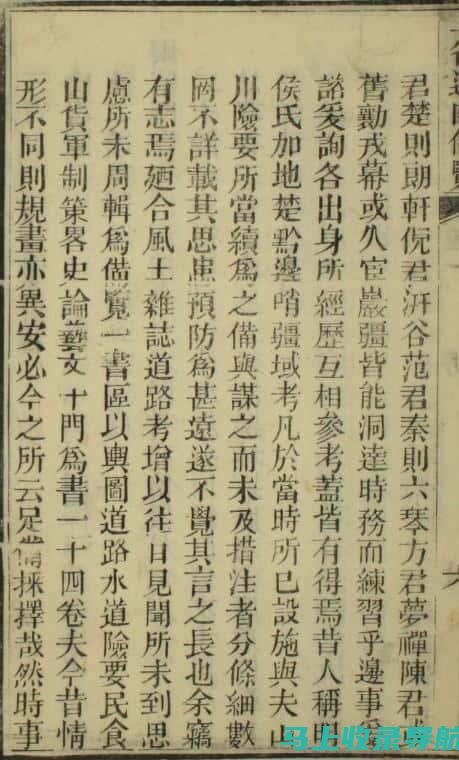 君楚則朗軒倪君洴谷范君秦則六琴方君夢禪陳君或
舊勷戎幕或久宦巖疆皆能洞達時務而練習乎邊事爰
諮爰詢各出身所經歷互相參考蓋皆有得焉昔人稱明
侯氏加地楚黔邊哨疆域考凡於當時所已設施與夫山
川險要所當續爲之備與謀之而未及措注者分條細數
罔不詳載其思患預防爲甚遠遂不覺其言之長也余竊
有志焉廼合風土雜誌道路考增以往日見聞所未到思
慮所未周輯爲備覽一書區以輿圖道路水道險要民食
山貨軍制策畧史論藝文十門爲書一十四卷夫今昔情
形不同則規畫亦異安必今之所云足備採擇哉然時事
马上收录导航